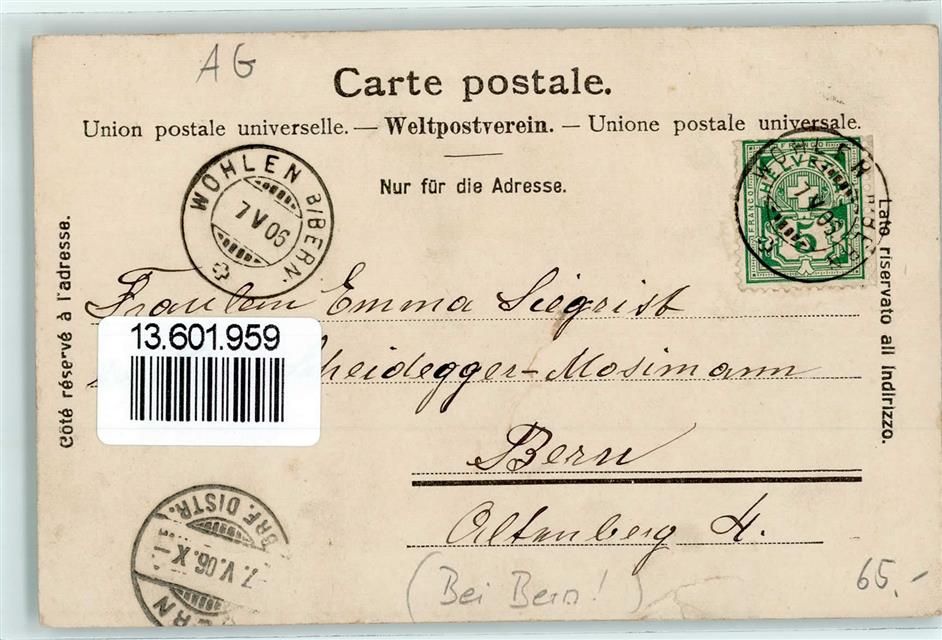 AG
Carte postale.
Union postale universelle. — Weltpostverein. — Unione postale universale.
Nur für die Adresse.
WOHLEN B/BERN
7 V 06
WOHLEN B/BERN
7 V 06
HELVETIA
FRANCO
5
Côté réservé à l'adresse.
Lato riservato all indirizzo.
Fräulein Emma Siegrist
13.601.959
heidegger-Mosimann
Bern
Altenberg 4.
BRF. DISTR.
7. V. 06. X
ERN
(Bei Bern!)
65,-